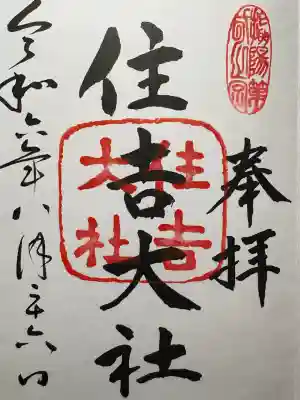 奉拝
住吉大社
住吉大社
令和六年八月二十六日